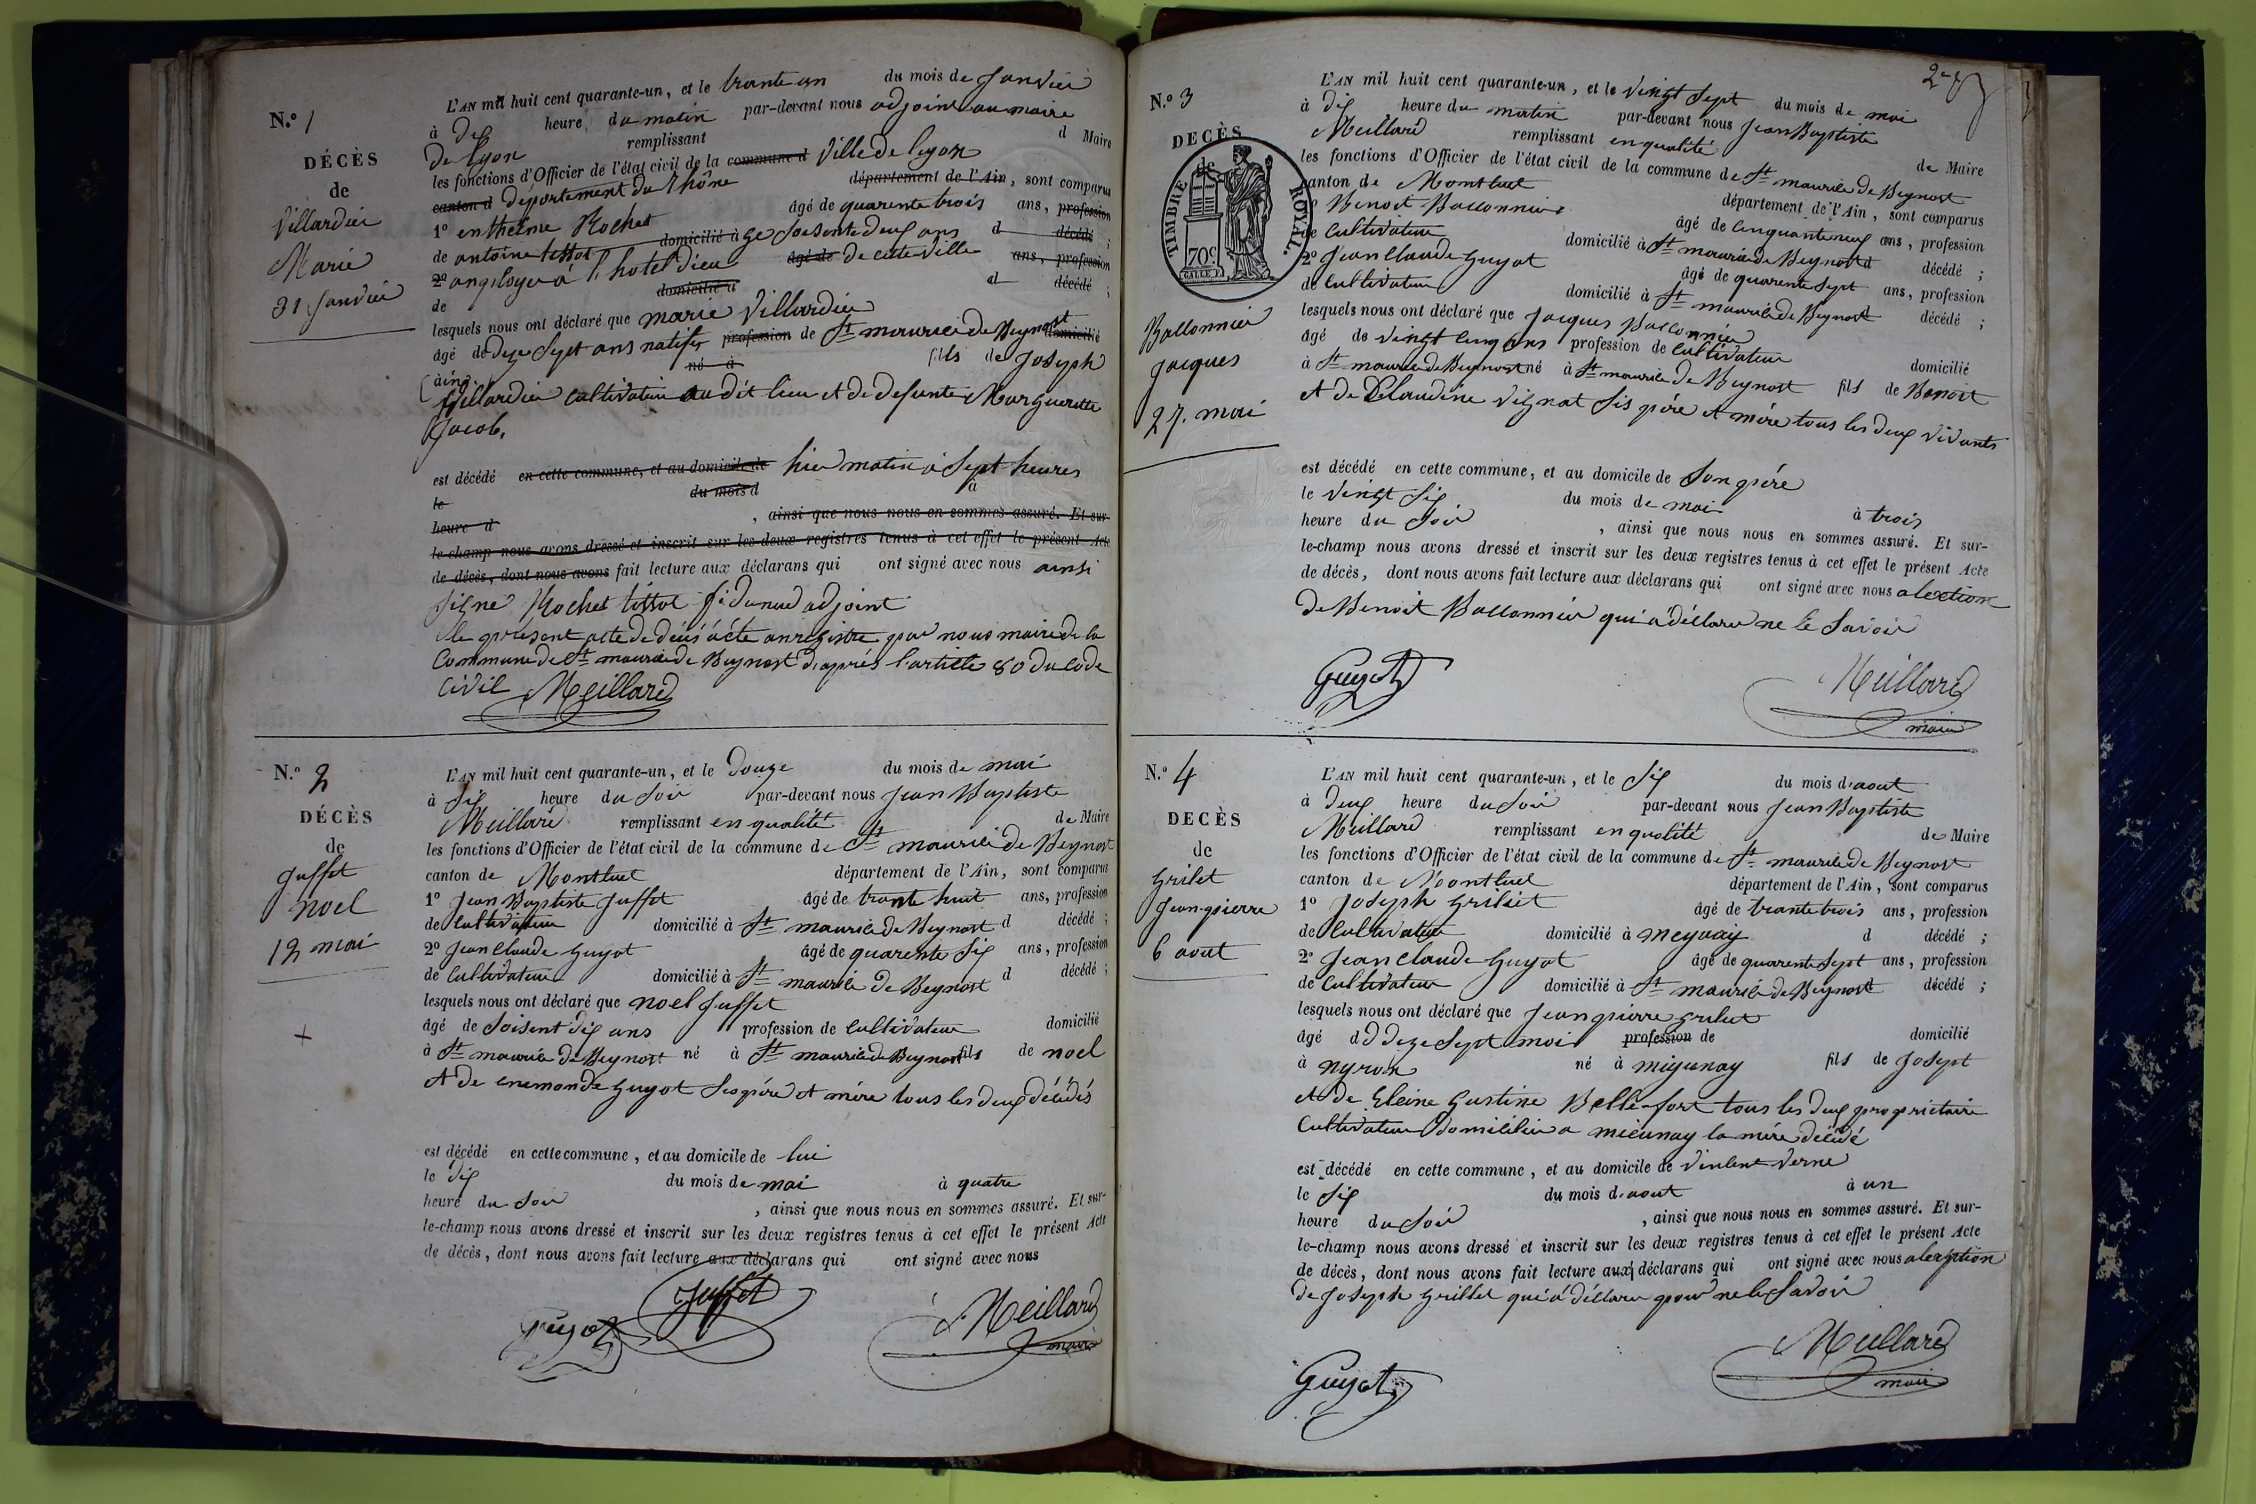 N.º 1
DÉCÈS
de
Villardier
Marie
31 Janvier
L'AN mil huit cent quarante-un, et le trante un du mois de Janvier
à dix heure du matin par-devant nous adjoint au maire
de lyon remplissant d Maire
les fonctions d'Officier de l'état civil de la commune d Ville de lyon
canton d département du rhône département de l'Ain, sont comparus
1º enthelme Rochet âgé de quarente trois ans, profession
de antoine tissot domicilié âge soisente deux ans d décédé ;
2º anployer à l'hotel dieu âgé de de cette ville ans, profession
de domicilié à d décédé ;
lesquels nous ont déclaré que marie Villardier
âgé de dixe sept ans natif profession de St maurice de Beynost domicilié
(ain) né à fils de Joseph
Villardier cultivateur au dit lieu et de defunte Margueritte
Jacob,
est décédé en cette commune, et au domicile de hier matin à sept heures
le du mois d à
heure d , ainsi que nous nous en sommes assuré. Et sur-
le-champ nous avons dressé et inscrit sur les deux registres tenus à cet effet le présent Acte
de décès, dont nous avons fait lecture aux déclarans qui ont signé avec nous ainsi
signe Rochet tissot adjoint
le présent acte de décès a été anregistre par nous maire de la
Commune de St maurice de Beynost d'apprés l'article 80 du code
civil Meillard
N.º 2
DÉCÈS
de
Juffet
noel
12 mai
L'AN mil huit cent quarante-un, et le douze du mois de mai
à six heure du soir par-devant nous Jean Baptiste
Meillard remplissant en qualité de Maire
les fonctions d'Officier de l'état civil de la commune de St maurice de Beynost
canton de Montluel département de l'Ain, sont comparus
1º Jean Baptiste Juffet âgé de trante huit ans, profession
de cultivateur domicilié à St maurice de Beynost d décédé ;
2º Jean Claude Guyot âgé de quarente six ans, profession
de cultivateur domicilié à St maurice de Beynost d décédé ;
lesquels nous ont déclaré que noel Juffet
âgé de soisent dix ans profession de cultivateur domicilié
à St maurice de Beynost né à St maurice de Beynost fils de noel
et de enemonde Guyot ses père et mère tous les deux décédés
est décédé en cette commune, et au domicile de lui
le dix du mois de mai à quatre
heure du soir , ainsi que nous nous en sommes assuré. Et sur-
le-champ nous avons dressé et inscrit sur les deux registres tenus à cet effet le présent Acte
de décès, dont nous avons fait lecture aux déclarans qui ont signé avec nous
Guyot Juffet Meillard
maire
N.º 3
DECÈS
de
TIMBRE ROYAL
70 c.
Ballonnier
Jacques
27. mai
L'AN mil huit cent quarante-un, et le vingt sept du mois de mai
à dix heure du matin par-devant nous Jean Baptiste
Meillard remplissant en qualité de Maire
les fonctions d'Officier de l'état civil de la commune de St maurice de Beynost
canton de Montluel département de l'Ain, sont comparus
Benoit Ballonnier âgé de cinquante neuf ans, profession
de cultivateur domicilié à St maurice de Beynost d décédé ;
2º Jean Claude Guyot âgé de quarente sept ans, profession
de cultivateur domicilié à St maurice de Beynost décédé ;
lesquels nous ont déclaré que Jacques Ballonnier
âgé de vingt cinq ans profession de cultivateur domicilié
à St maurice de Beynost né à St maurice de Beynost fils de Benoit
et de Claudine Vignat sis père et mère tous les deux vivants
est décédé en cette commune, et au domicile de son père
le vingt six du mois de mai à trois
heure du soir , ainsi que nous nous en sommes assuré. Et sur-
le-champ nous avons dressé et inscrit sur les deux registres tenus à cet effet le présent Acte
de décès, dont nous avons fait lecture aux déclarans qui ont signé avec nous alextion
de Benoit Ballonnier qui a déclaré ne le savoir
Guyot Meillard
maire
N.º 4
DECÈS
de
Grilet
Jean pierre
6 aout
L'AN mil huit cent quarante-un, et le six du mois d'aout
à deux heure du soir par-devant nous Jean Baptiste
Meillard remplissant en qualité de Maire
les fonctions d'Officier de l'état civil de la commune de St maurice de Beynost
canton de Montluel département de l'Ain, sont comparus
1º Joseph Grilet âgé de trante trois ans, profession
de cultivateur domicilié à d décédé ;
2º Jean Claude Guyot âgé de quarente sept ans, profession
de cultivateur domicilié à St maurice de Beynost décédé ;
lesquels nous ont déclaré que Jean pierre Grilet
âgé d dixe sept mois profession de domicilié
à nyron né à fils de Josept
et de Belle-fort tous les deux propriétaire
cultivateur domicilier a la mère décédé
est décédé en cette commune, et au domicile de Vinlent Verne
le six du mois d'aout à un
heure du soir , ainsi que nous nous en sommes assuré. Et sur-
le-champ nous avons dressé et inscrit sur les deux registres tenus à cet effet le présent Acte
de décès, dont nous avons fait lecture aux déclarans qui ont signé avec nous
de Joseph Grillet qui a déclaré pour ne le savoir
Guyot Meillard
maire